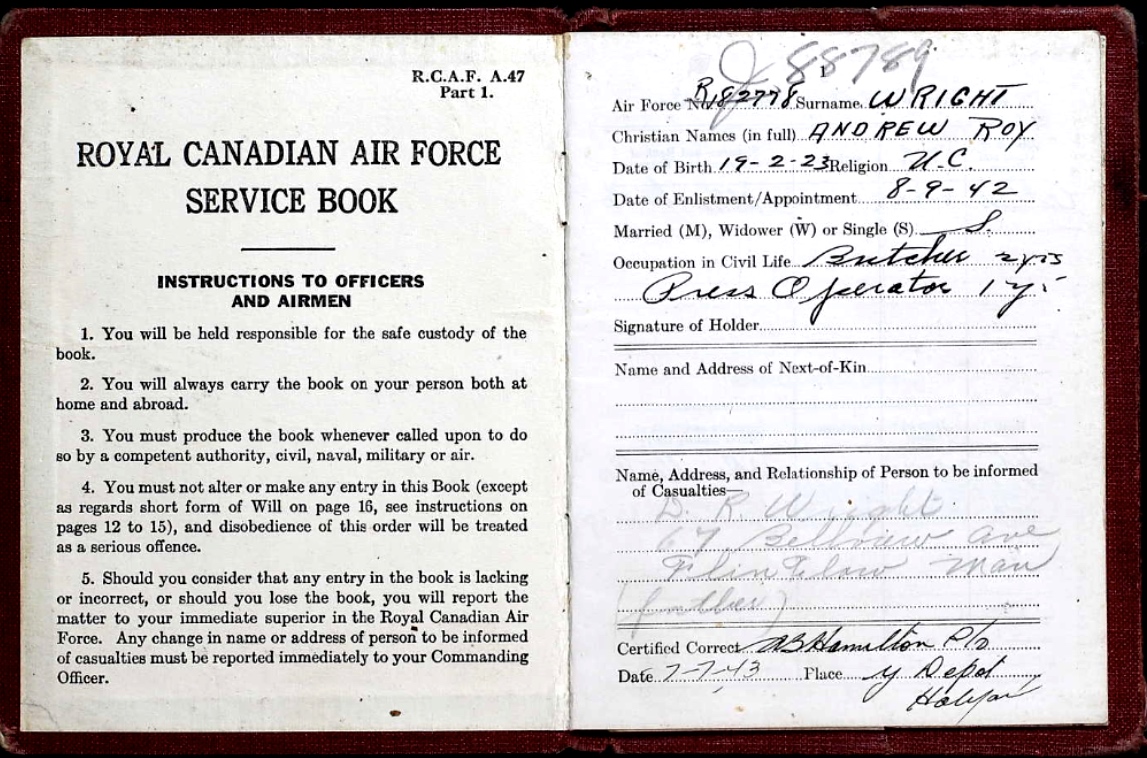 R.C.A.F. A.47
Part 1.
ROYAL CANADIAN AIR FORCE
SERVICE BOOK
INSTRUCTIONS TO OFFICERS
AND AIRMEN
1. You will be held responsible for the safe custody of the
book.
2. You will always carry the book on your person both at
home and abroad.
3. You must produce the book whenever called upon to do
so by a competent authority, civil, naval, military or air.
4. You must not alter or make any entry in this Book (except
as regards short form of Will on page 16, see instructions on
pages 12 to 15), and disobedience of this order will be treated
as a serious offence.
5. Should you consider that any entry in the book is lacking
or incorrect, or should you lose the book, you will report the
matter to your immediate superior in the Royal Canadian Air
Force. Any change in name or address of person to be informed
of casualties must be reported immediately to your Commanding
Officer.
J 88789
1
Air Force No. R182778 Surname WRIGHT
Christian Names (in full) ANDREW ROY
Date of Birth 19-2-23 Religion U.C.
Date of Enlistment/Appointment 8-9-42
Married (M), Widower (W) or Single (S) S.
Occupation in Civil Life Butcher 2 yrs
Press Operator 1 yr
Signature of Holder
Name and Address of Next-of-Kin
Name, Address, and Relationship of Person to be informed
of Casualties—
D. R. Wright
67 Bellview Ave
Flin Flon Man
(father)
Certified Correct AB Hamilton P/O
Date 7-7-43 Place Y Depot
Halifax